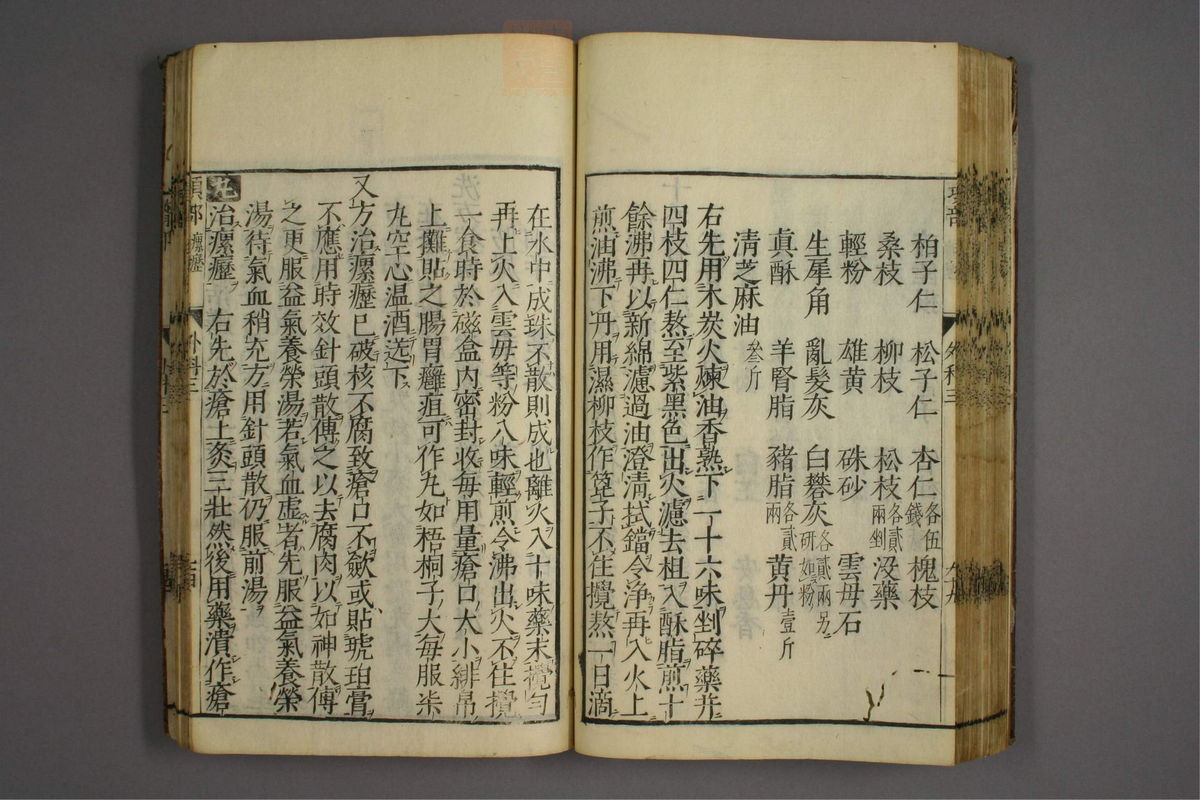 柏子仁 松子仁 杏仁各伍錢 槐枝
桑枝 柳枝 松枝各貳兩剉 沒藥
輕粉 雄黃 硃砂 雲母石
生犀角 亂髮灰 白礬灰各貳兩另研如粉
真酥 羊腎脂 豬脂各貳兩 黃丹壹斤
清芝麻油叁斤
右先用木炭火煉油香熟下一十六味剉碎藥并
四枝四仁熬至紫黑色出火濾去柤入酥脂煎十
餘沸再以新綿濾過油澄清拭鐺令淨再入火上
煎油沸下丹用濕柳枝作篦子不住攪熬一日滴
在水中成珠不散則成也離火入十味藥末攪勻
再上火入雲母等粉八味輕煎令沸出火不住攪
一食時於磁盒內密封收每用量瘡口大小緋帛
上攤貼之腸胃癰疽可作丸如梧桐子大每服柒
丸空心温酒送下
又方治瘰癧已破核不腐致瘡口不歛或貼琥珀膏
不應用時效針頭散傅之以去腐肉以如神散傅
之更服益氣養榮湯若氣血虛者先服益氣養榮
湯待氣血稍充方用針頭散仍服前湯
灸治瘰癧 右先於瘡上灸三壯然後用藥潰作瘡
項部 瘰癧 外科三